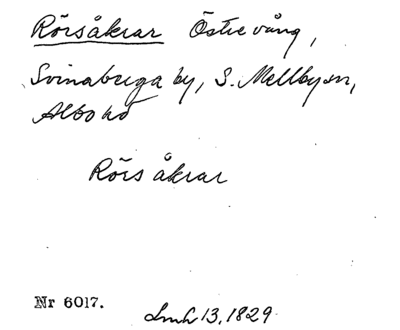 Rörsåkrar Östre vång,
Svinaberga by, S. Mellby sn,
Albo hd
Rörs åkrar
Nr 6017.
Lmh 13, 1829.